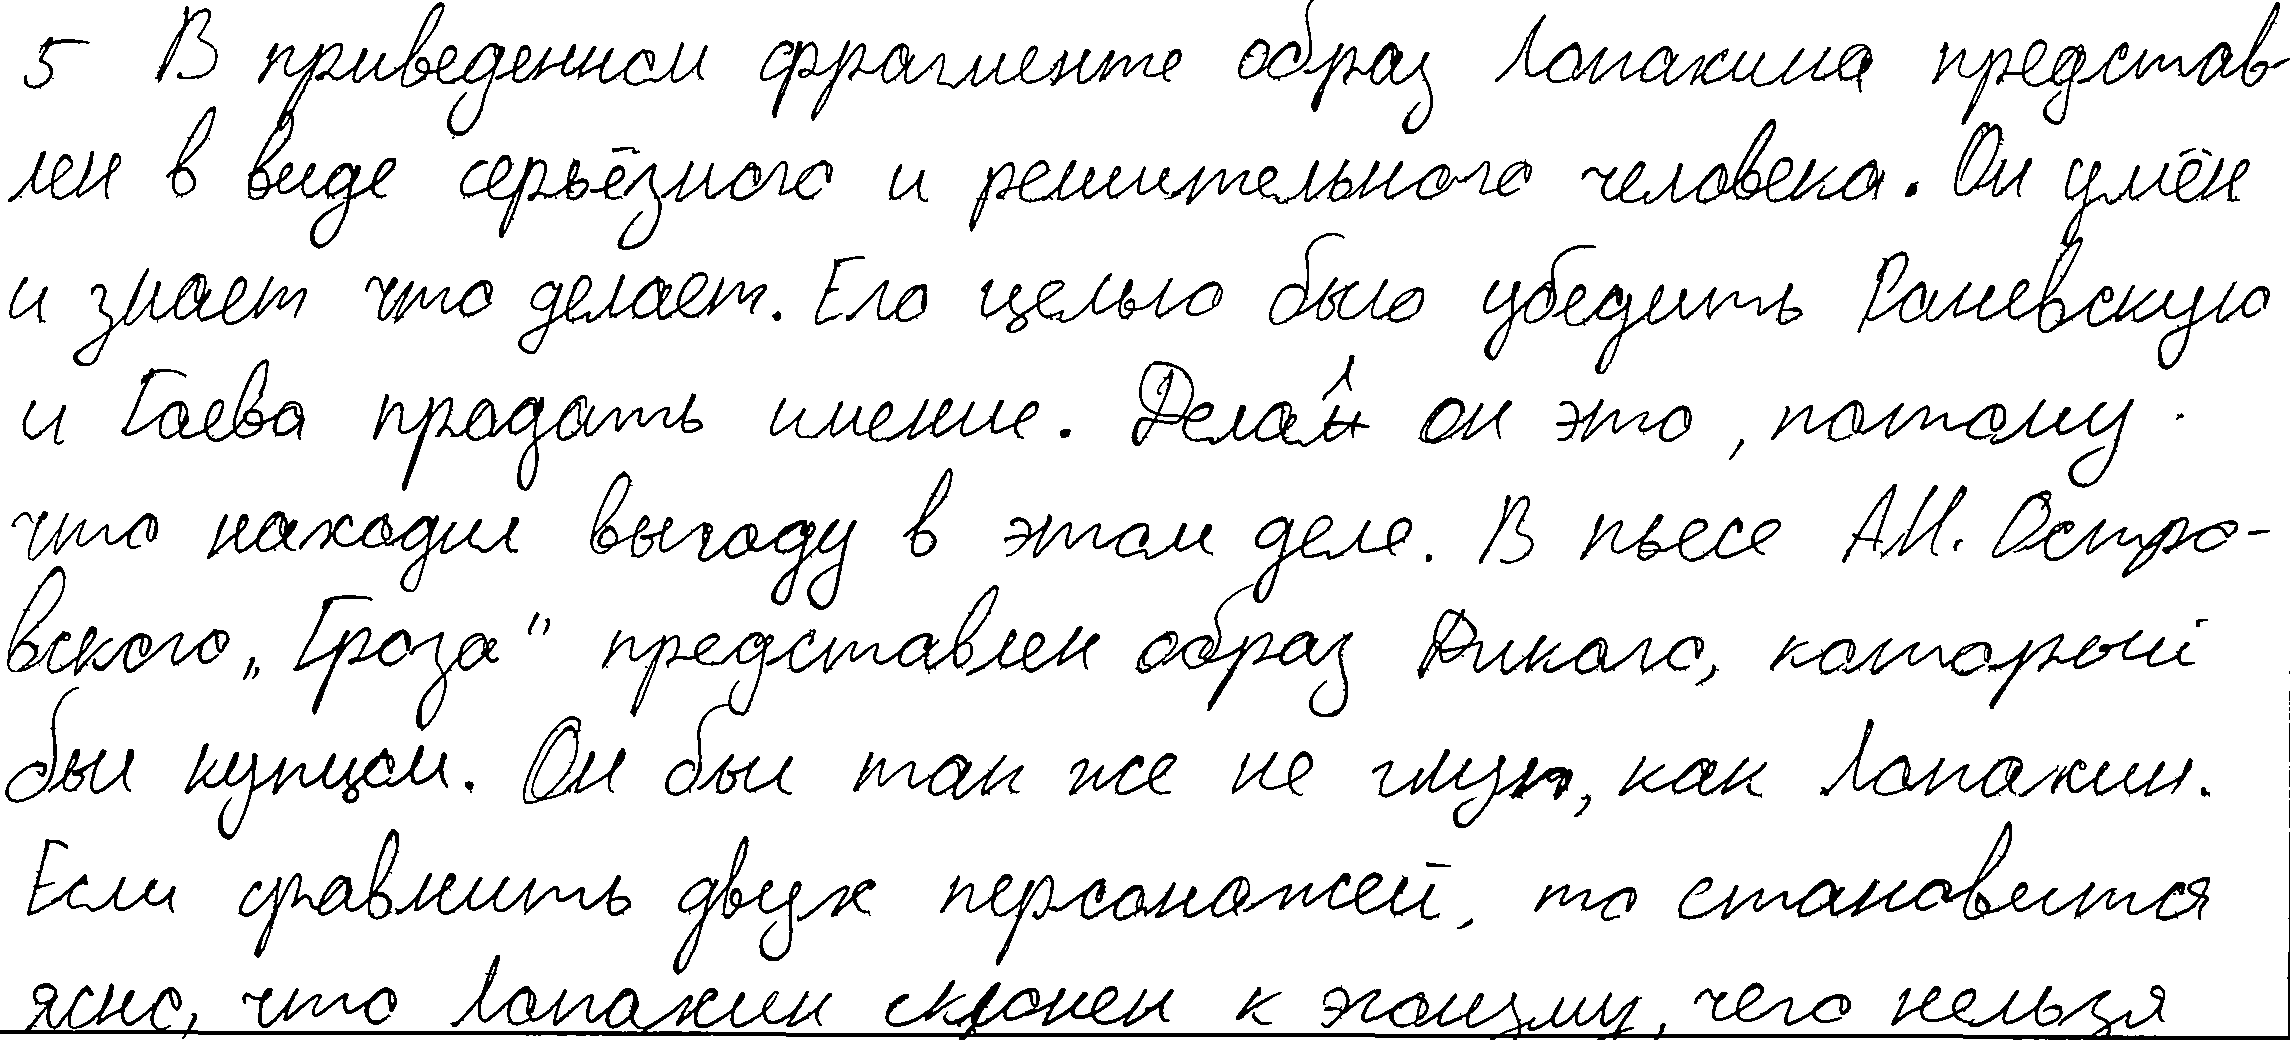 5 В приведенном фрагменте образ Лопахина представ-
лен в виде серьёзного и решительного человека. Он умён
и знает что делает. Его целью было убедить Раневскую
и Гаева продать имение. Делал он это, потому
что находил выгоду в этом деле. В пьесе А.Н. Остро-
вского „Гроза" представлен образ Дикого, который
был купцом. Он был так же не глуп, как Лопахин.
Если сравнить двух персонажей, то становится
ясно, что Лопахин склонен к эгоизму, чего нельзя